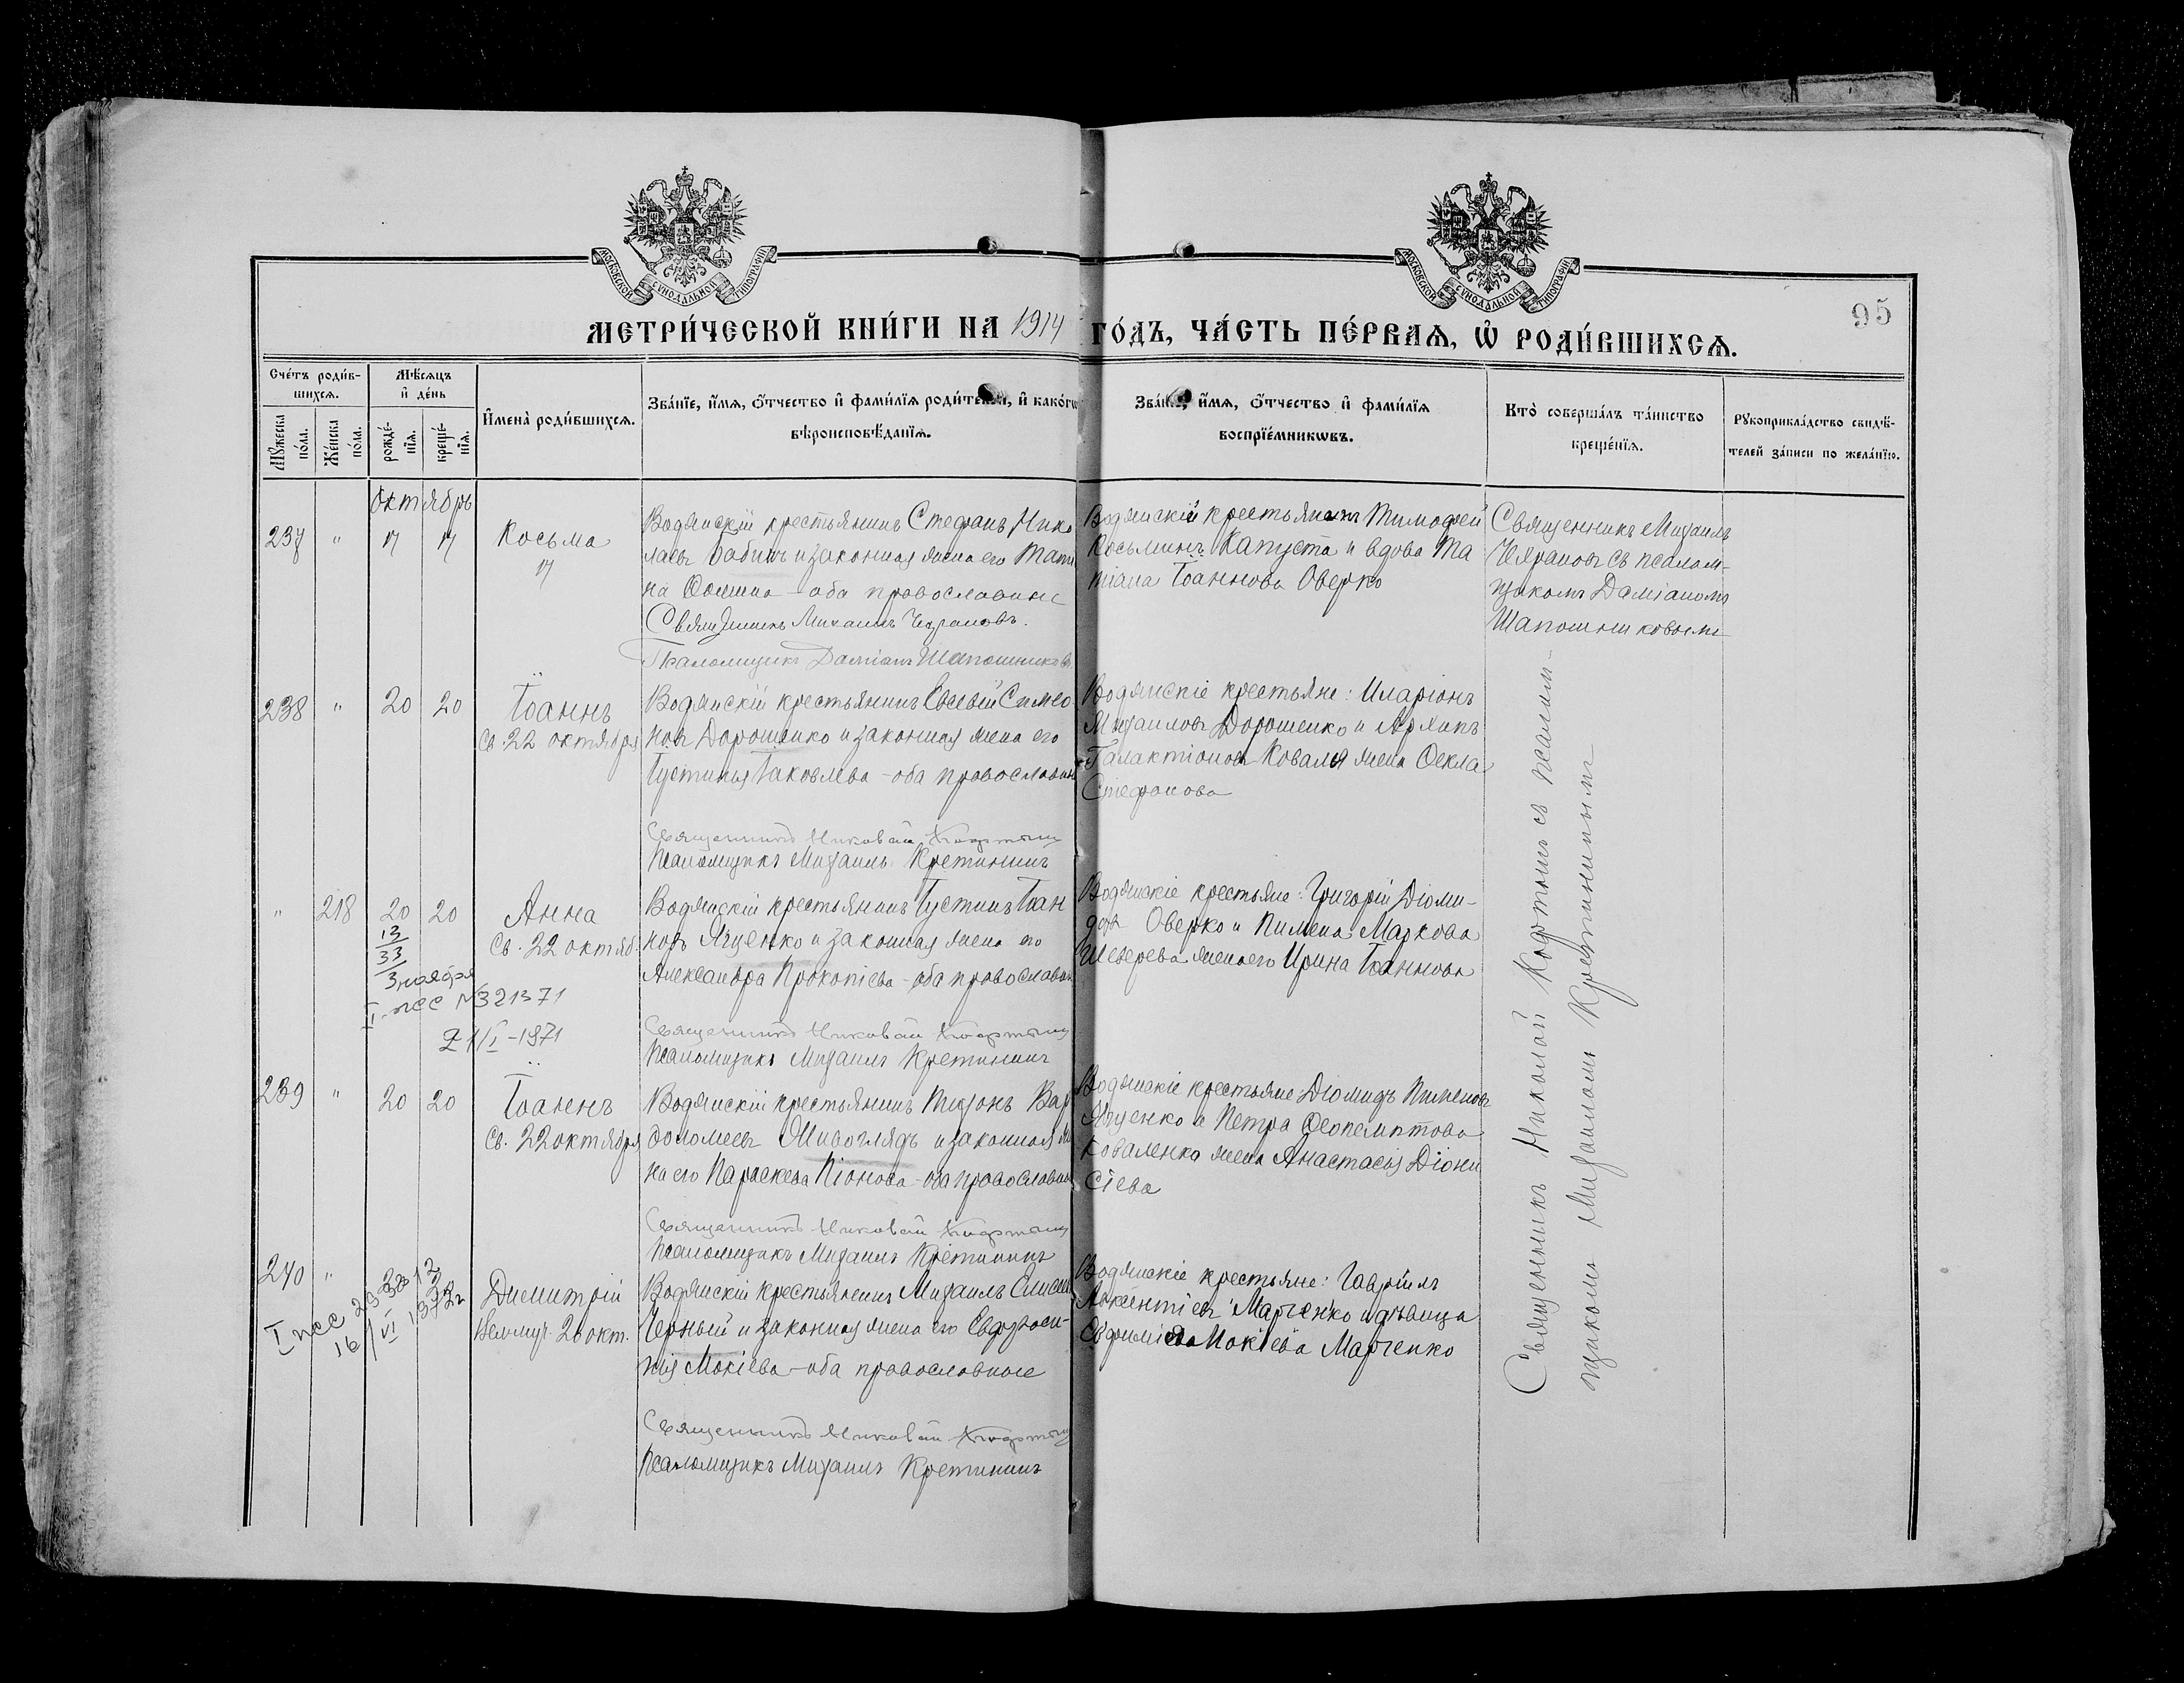 МОСКОВСКОЙ СѴНОДАЛЬНОЙ ТИПОГРАФІИ
МОСКОВСКОЙ СѴНОДАЛЬНОЙ ТИПОГРАФІИ
95
МЕТРИ́ЧЕСКОЙ КНИ́ГИ НА 1914 ГО́ДЪ, ЧА́СТЬ ПЕ́РВАѦ, Ѡ҆ РОДИ́ВШИХСѦ.
Сче́тъ роди́в-
шихсѧ.
Мѣ́сѧцъ
и҆ де́нь
Мꙋ́жеска по́ла.
Же́нска по́ла.
рожде́-
нїѧ.
креще́-
нїѧ.
И҆мена̀ роди́вшихсѧ.
Зва́нїе, и҆́мѧ, ѻ҆́тчество и҆ фамѵ́лїѧ роди́телей, и҆ како́гѡ
вѣроисповѣ́данїѧ.
Зва́нїе, и҆́мѧ, ѻ҆́тчество и҆ фами́лїѧ
воспрїе́мникѡвъ.
Кто̀ соверша́лъ та́инство
креще́нїѧ.
Рꙋкоприкла́дство свидѣ́-
телей за́писи по жела́нїю.
Октябрь
237 " 17 17 Косьма
17
Водянскій крестьянинъ Стефанъ Нико
лаевъ Бабичъ и законная жена его Татiа
на Ѳомина - оба православные
Священникъ Михаилъ
Псаломщикъ Даміанъ Шапошниковъ.
Водянскій крестьянинъ Тимофей
Косьминъ Капуста и вдова Та
тіана Іоаннова Оверко
Священникъ Михаилъ
съ псалом-
щикомъ Даміаномъ
Шапошниковымъ
238 " 20 20 Іоаннъ
Св. 22 октября
Водянскій крестьянинъ Евсевій Симео
новъ Дорошенко и законная жена его
Іустинья Іаковлева - оба православные
Священникъ Николай
Псаломщикъ Михаилъ Кретининъ
Водянскіе крестьяне: Иларіонъ
Михаиловъ Дорошенко и Архипа
Галактіонова Коваля жена Ѳекла
Стефанова
" 218 20 20 Анна
Св. 22 октяб.
13
33
3 ноября
I пес № 321371
21/I-1971
Водянскій крестьянинъ Іустинъ Іоан
новъ Яценко и законная жена его
Александра Прокопіева - оба православные
Священникъ Николай
Псаломщикъ Михаилъ Кретининъ
Водянскіе крестьяне: Григорій Діоми-
довъ Оверко и Пимена Маркова
жена его Ирина Іоаннова
239 " 20 20 Іоаннъ
Св. 22 октября
Водянскій крестьянинъ Тихонъ Вар
доломеевъ и законная же
на его Параскева Піонова - оба православные
Священникъ Николай
Псаломщикъ Михаилъ Кретининъ
Водянскіе крестьяне Діомидъ Пименовъ
Яценко и Петра Ѳеопемптова
Коваленка жена Анастасія Діони
сіева
240 " 22 Димитрій
Велмуч. 26 окт.
Водянскій крестьянинъ Михаилъ
Черный и законная жена его Евфроси-
нія Мокіева - оба православные
Священникъ Николай
Псаломщикъ Михаилъ Кретининъ
Водянскіе крестьяне: Гавріилъ
Авксентіевъ Марченко и дѣвица
Евфимія Мокіева Марченко
Священникъ Николай съ псалом-
щикомъ Михаиломъ Кретининымъ